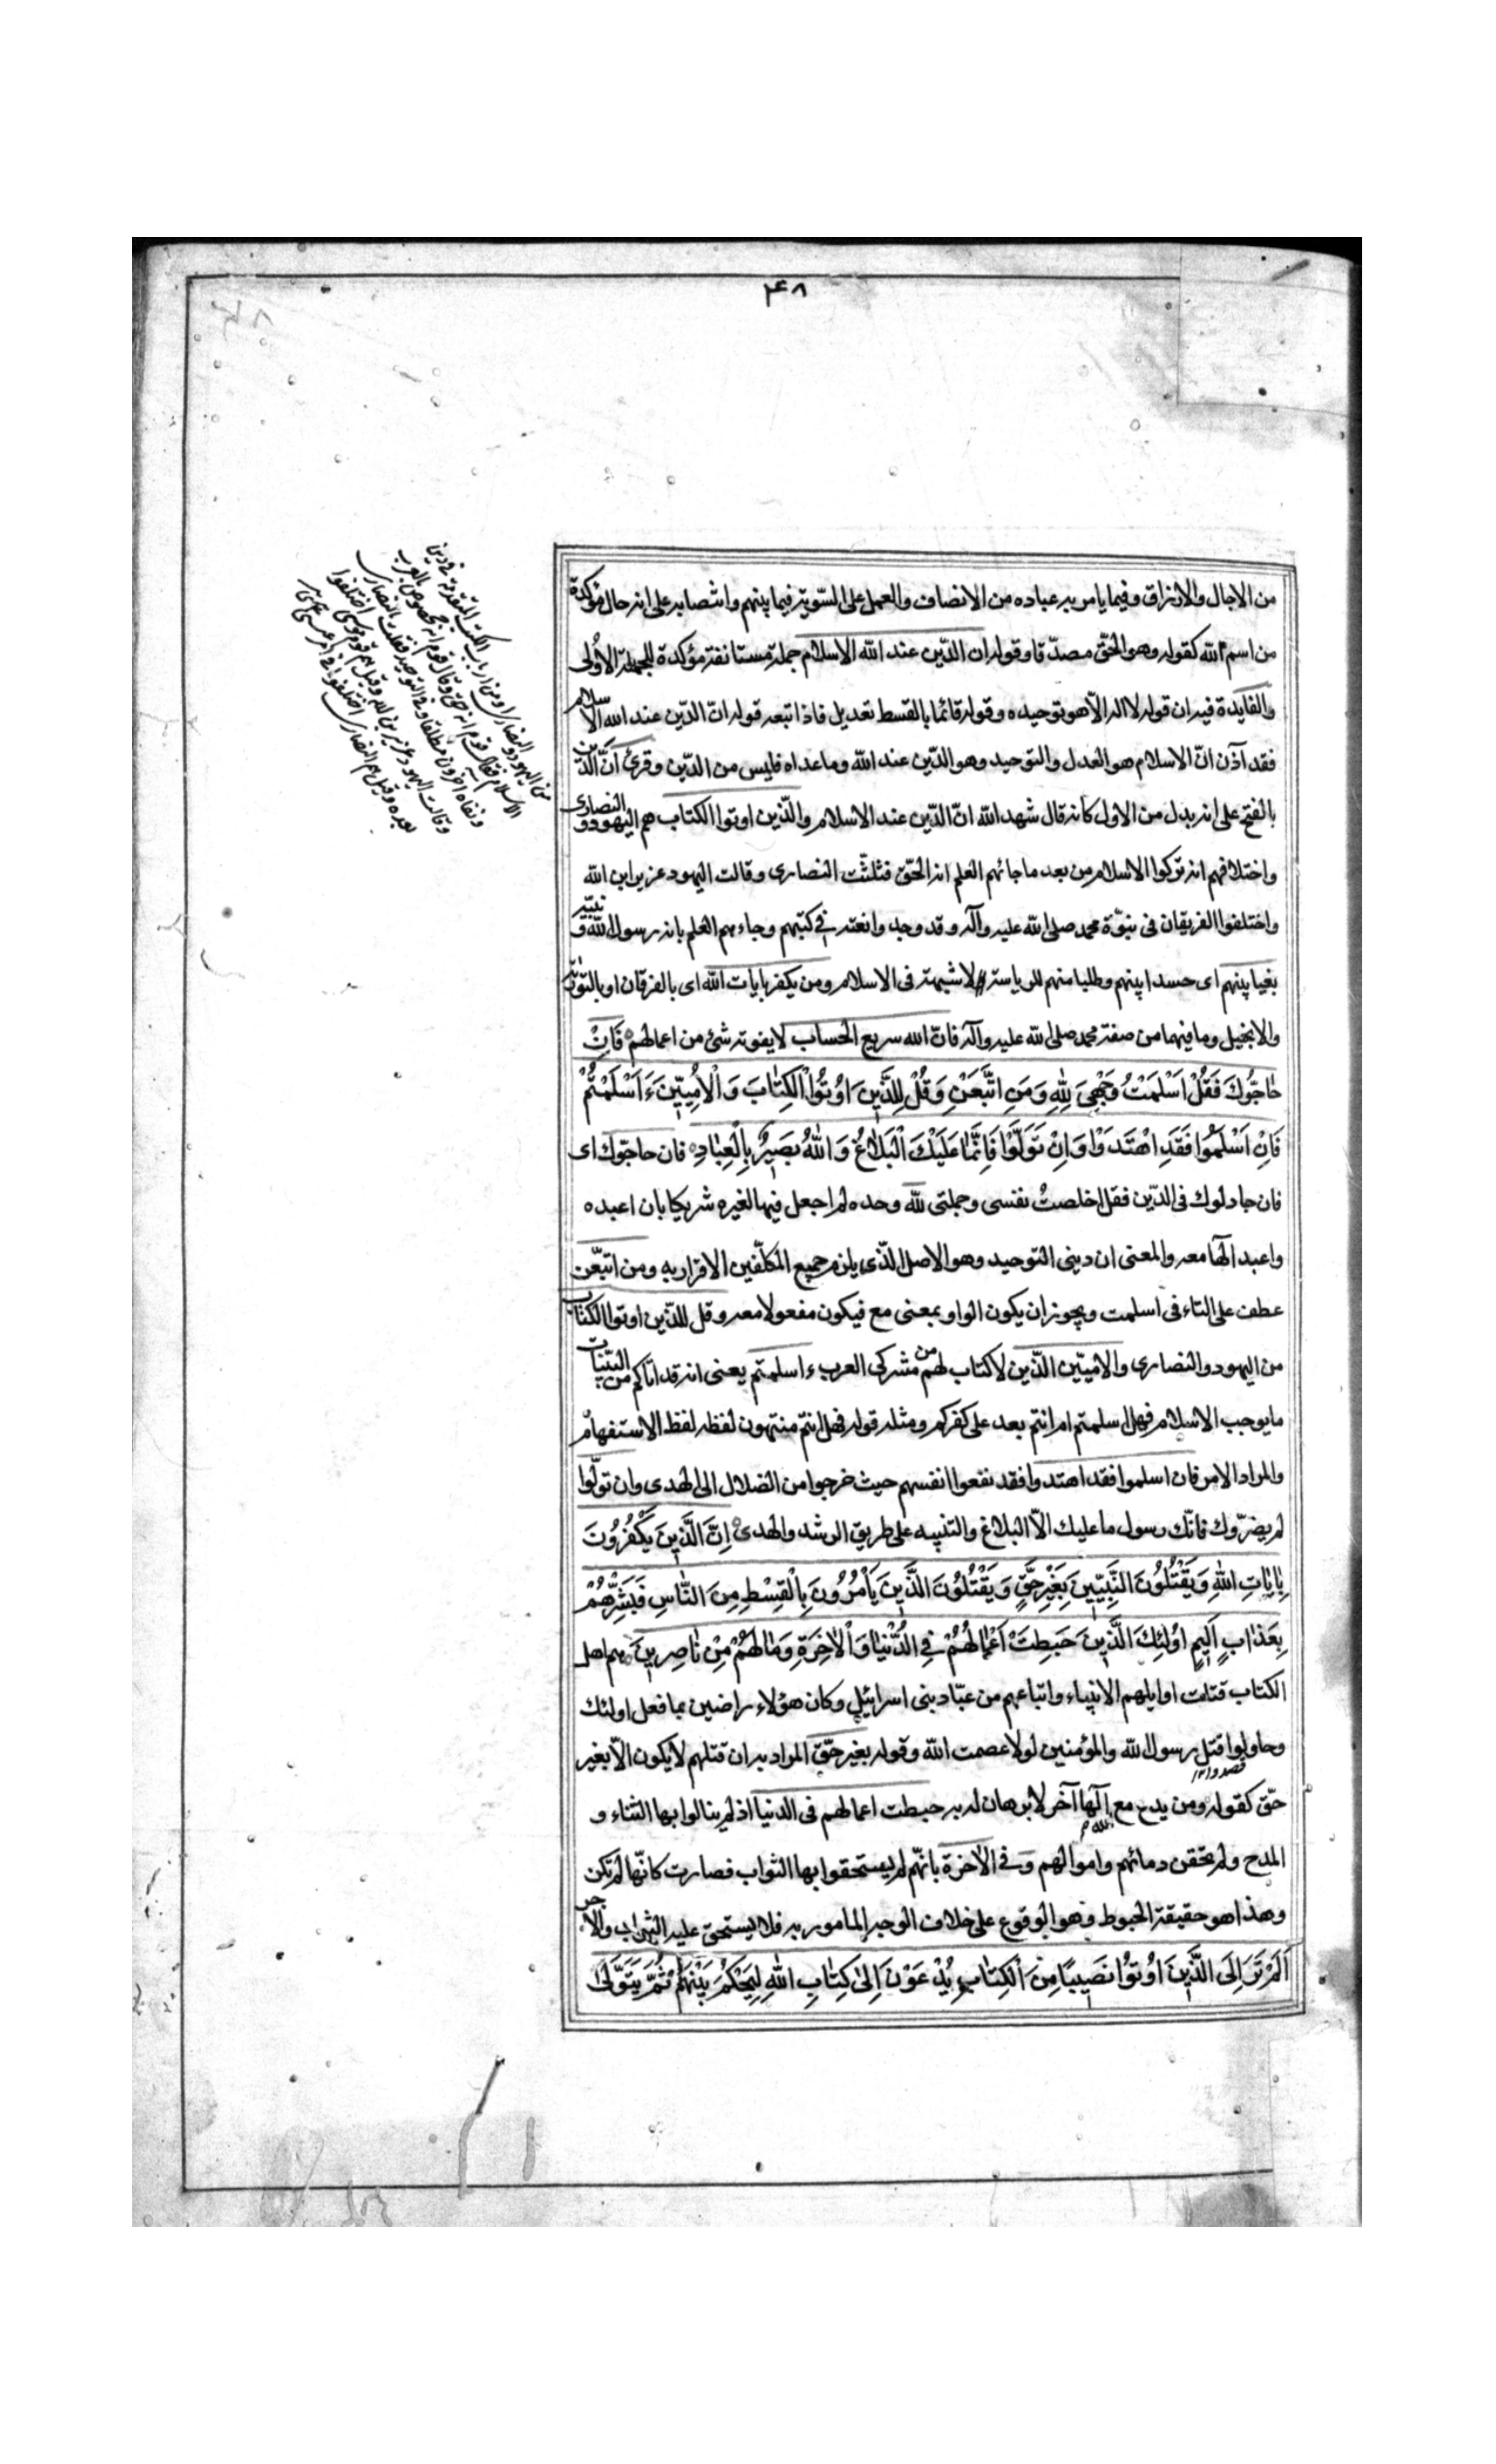 ۳۴۸
من الاجال والارزاق وفيما يامر به عباده من الانصاف والعمل على السّوية فيما بينهم وانتصابه على انه حال مؤكدة
من اسم الله كقوله وهو الحقّ مصدّقا وقوله ان الدّين عند الله الاسلام جملة مستانفة مؤكدة للجملة الأولى
والفايدة فيه ان قوله لا اله الاّ هو توحيده وقوله قائما بالقسط تعديل فاذا اتبعه قوله انّ الدّين عند الله الاسلام
فقد آذن انّ الاسلام هو العدل والتوحيد وهو الدّين عند الله وما عداه فليس من الدّين وقرئ أنّ الدّين
بالفتح على انه بدل من الاول كانه قال شهد الله انّ الدّين عند الاسلام والّذين اوتوا الكتاب هم اليهود والنصارى
واختلافهم انه تركوا الاسلام من بعد ما جائهم العلم انه الحقّ فثلّثت النصارى وقالت اليهود عزير ابن الله
واختلفوا الفريقان فى نبوّة محمد صلى الله عليه وآله وقد وجدوا نعته فى كتبهم وجاءهم العلم بانه رسول الله ونبيّه
بغيا بينهم اى حسدا بينهم وطلبا منهم للرياسة لا شبهة فى الاسلام ومن يكفر بايات الله اى بالفرقان او بالتورٰية
والانجيل وما فيهما من صفة محمد صلى الله عليه وآله فانّ الله سريع الحساب لا يفوته شئ من اعمالهم فَاِنْ
حٰاجُّوكَ فَقُلْ اَسْلَمْتُ وَجْهِىَ لِلّٰهِ وَمَنِ اتَّبَعَنِ وَقُلْ لِلَّذينَ اُوتُوا الْكِتٰابَ وَالْاُمِّيّينَ ءَاَسْلَمْتُمْ
فَاِنْ اَسْلَمُوا فَقَدِ اهْتَدَوْا وَاِنْ تَوَلَّوْا فَاِنَّمٰا عَلَيْكَ الْبَلٰاغُ وَاللّٰهُ بَصيرٌ بِالْعِبٰادِ فان حاجّوك اى
فان جادلوك فى الدّين فقل اخلصتُ نفسى وجملتى لله وحده لم اجعل فيها لغيره شريكا بان اعبده
واعبد الٰها معه والمعنى ان دينى التوحيد وهو الاصل الّذى يلزم جميع المكلّفين الاقرار به ومن اتّبعن
عطف على التاء فى اسلمت ويجوز ان يكون الواو بمعنى مع فيكون مفعولا معه وقل للّذين اوتوا الكتاب
من اليهود والنصارى والاميّين الّذين لا كتاب لهم من مشركى العرب ءاسلمتم يعنى انه قد اتاكم من البيّنات
ما يوجب الاسلام فهل اسلمتم ام انتم بعد على كفركم ومثله قوله فهل انتم منتهون لفظه لفظ الاستفهام
والمراد الامر فان اسلموا فقد اهتدوا فقد نفعوا انفسهم حيث خرجوا من الضلال الى الهدى وان تولّوا
لم يضرّوك فانّك رسول ما عليك الاّ البلاغ والتنبيه على طريق الرشد والهدى اِنَّ الَّذينَ يَكْفُرُونَ
بِاٰيٰاتِ اللّٰهِ وَيَقْتُلُونَ النَّبِيّينَ بِغَيْرِ حَقٍّ وَيَقْتُلُونَ الَّذينَ يَأْمُرُونَ بِالْقِسْطِ مِنَ النّٰاسِ فَبَشِّرْهُمْ
بِعَذٰابٍ اَليمٍ اُولٰئِكَ الَّذينَ حَبِطَتْ اَعْمٰالُهُمْ فِى الدُّنْيٰا وَالْاٰخِرَةِ وَمٰا لَهُمْ مِنْ نٰاصِرينَ هم اهل
الكتاب قتلت اوايلهم الانبياء واتباعهم من عبّاد بنى اسرائيل وكان هؤلاء راضين بما فعل اولئك
وحاولوا قتل رسول الله والمؤمنين لولا عصمت الله وقوله بغير حقّ المراد به ان قتلهم لا يكون الاّ بغير
قصدوا
حقّ كقوله ومن يدع مع الله الٰها آخر لا برهان له به حبطت اعمالهم فى الدنيا اذ لم ينالوا بها الثناء و
المدح ولم تحقن دمائهم واموالهم وفى الآخرة بانّهم لم يستحقوا بها الثواب فصارت كانّها لم تكن
وهذا هو حقيقة الحبوط وهو الوقوع على خلاف الوجه المامور به فلا يستحق عليه الثواب والاجر
اَلَمْ تَرَ اِلَى الَّذينَ اُوتُوا نَصيبًا مِنَ الْكِتٰابِ يُدْعَوْنَ اِلىٰ كِتٰابِ اللّٰهِ لِيَحْكُمَ بَيْنَهُمْ ثُمَّ يَتَوَلّىٰ
من اليهود والنصارى او من ارباب الكتب المتقدمة فى دين
الاسلام فقال قوم انه حق وقال قوم انه مخصوص بالعرب
ونفاه آخرون مطلقا وفى التوحيد فثلثت النصارى
وقالت اليهود عزير بن الله وقيل هم قوم موسى اختلفوا
بعده وقيل هم النصارى اختلفوا فى امر عيسى